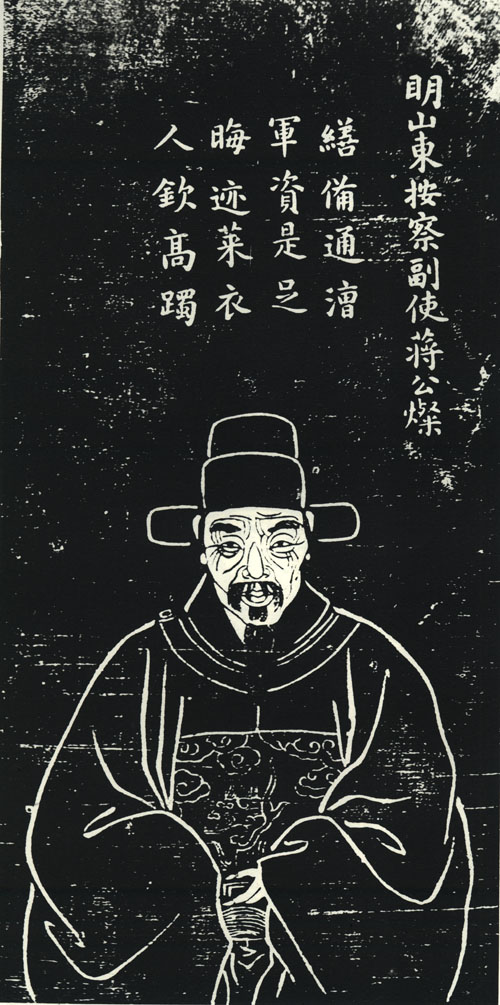 明山東按察副使蔣公燦
繕備通漕
軍資是足
晦迹萊衣
人欽高躅